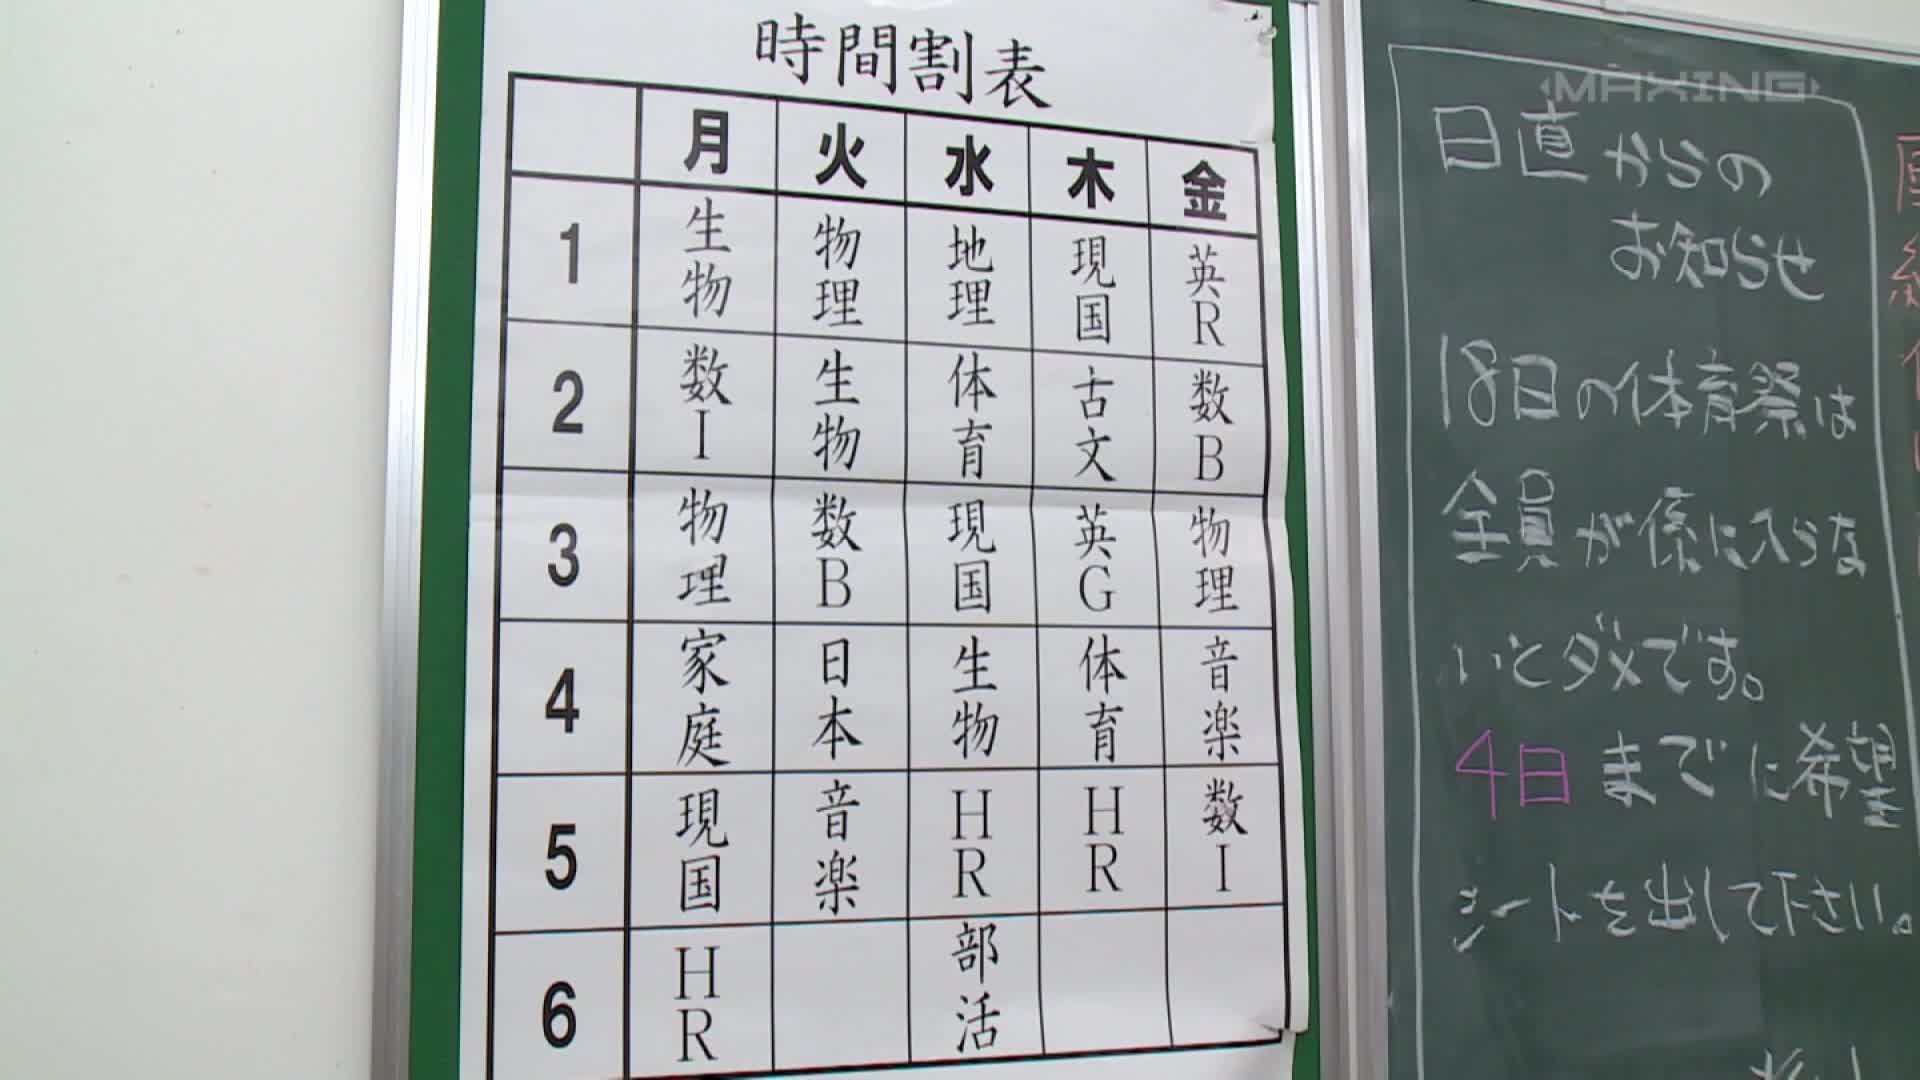 時間割表
月 火 水 木 金
1 生物 物理 地理 現国 英R
2 数I 生物 体育 古文 数B
3 物理 数B 現国 英G 物理
4 家庭 日本 生物 体育 音楽
5 現国 音楽 HR HR 数I
6 HR 部活
MAXING
日直からの
お知らせ
18日の体育祭は
全員が係に入らな
いとダメです。
4日までに希望
シートを出して下さい。